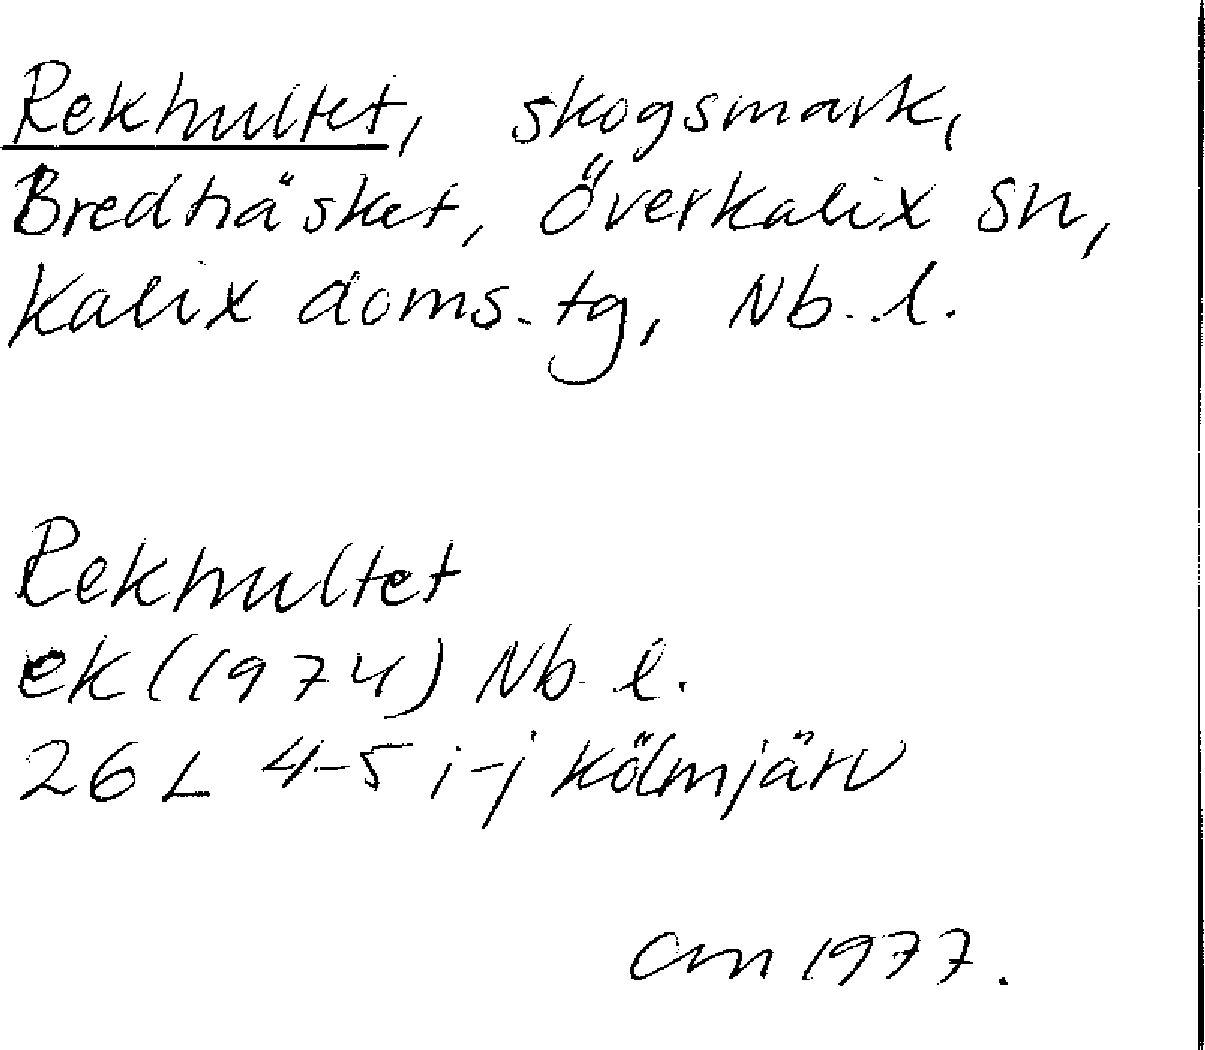 Rekhultet, skogsmark,
Bredträsket, Överkalix sn,
Kalix doms. tg, Nb. l.
Rekhultet
ek (1974) Nb l.
26 L 4-5 i-j Kölmjärv
Cm 1977.